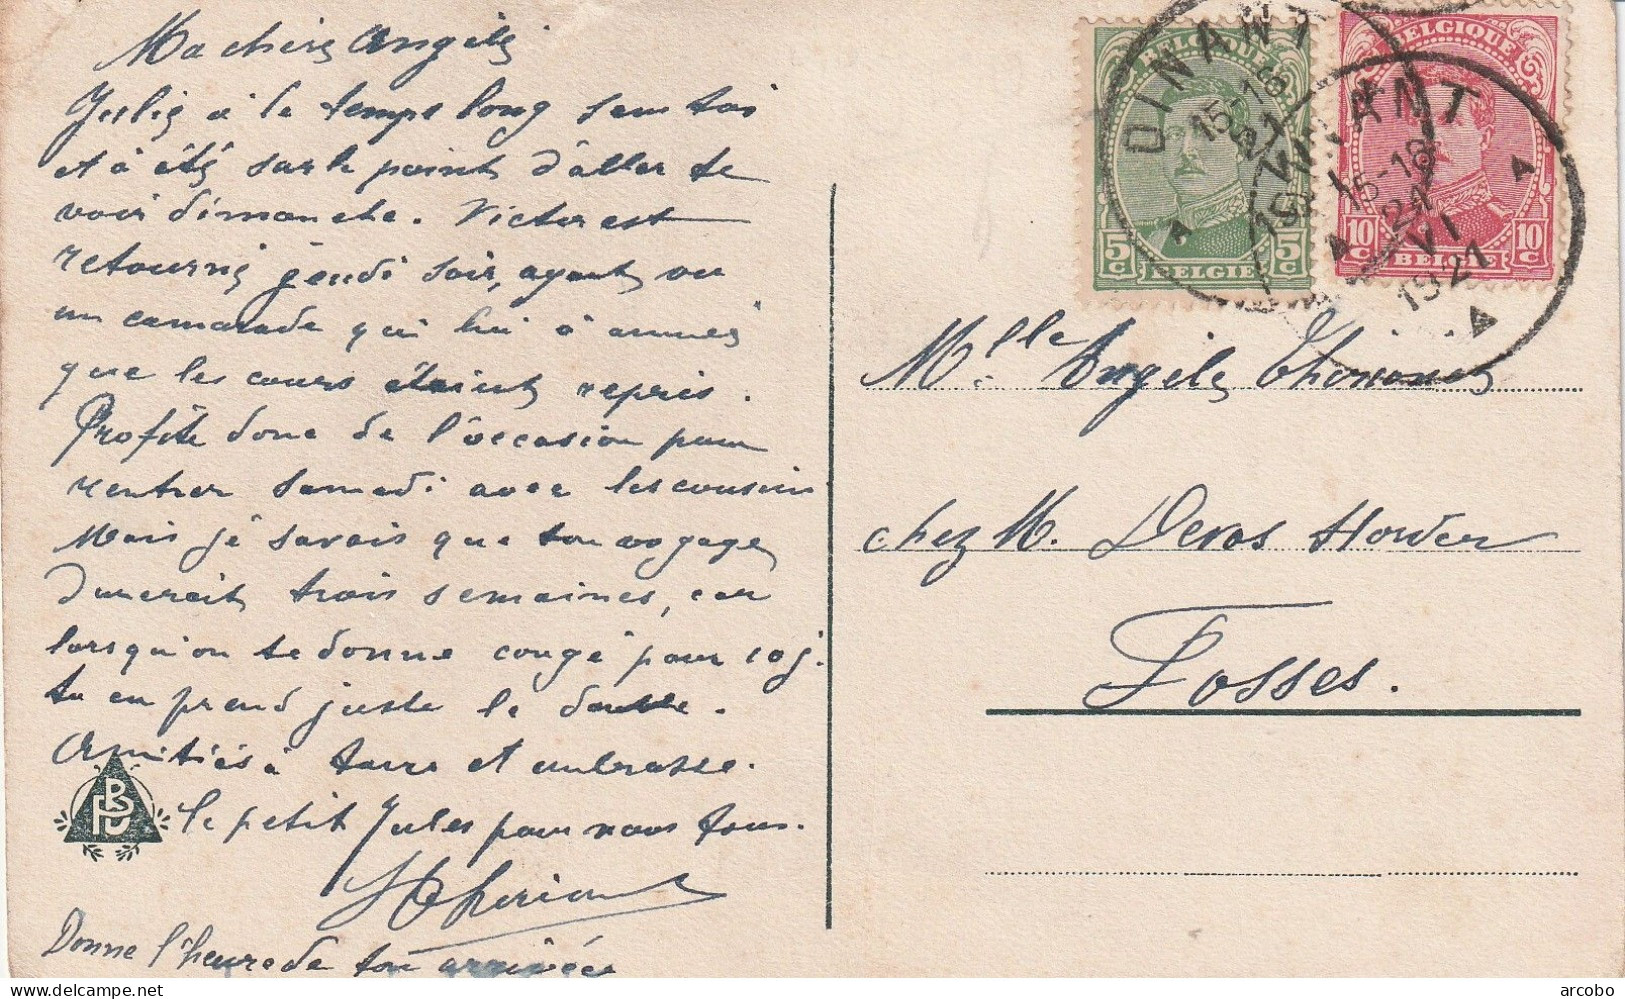 Ma chère Angèle
Julia à le temps long sans toi
et à été sur le point d'aller te
voir dimanche. Victor est
retourné jeudi soir, ayant vu
un camarade qui lui à annué
que les cours étaient repris.
Profite donc de l'occasion pour
rentrer samedi avec les cousins
Mais je savais que ton voyage
durerait trois semaines, car
lorsqu'on te donne congé pour 10 j.
tu en prend juste le double.
Amitiés à tous et embrasse.
le petit Jules pour nous tous.
Donne l'heure de ton arrivée
BELGIQUE
5c 5c
BELGIE
BELGIQUE
10c 10c
BELGIE
DINANT
15-16
DINANT
15-18
21
VI
1921
Melle Angèle
chez M. Devos
Fosses.
delcampe.net
arcobo